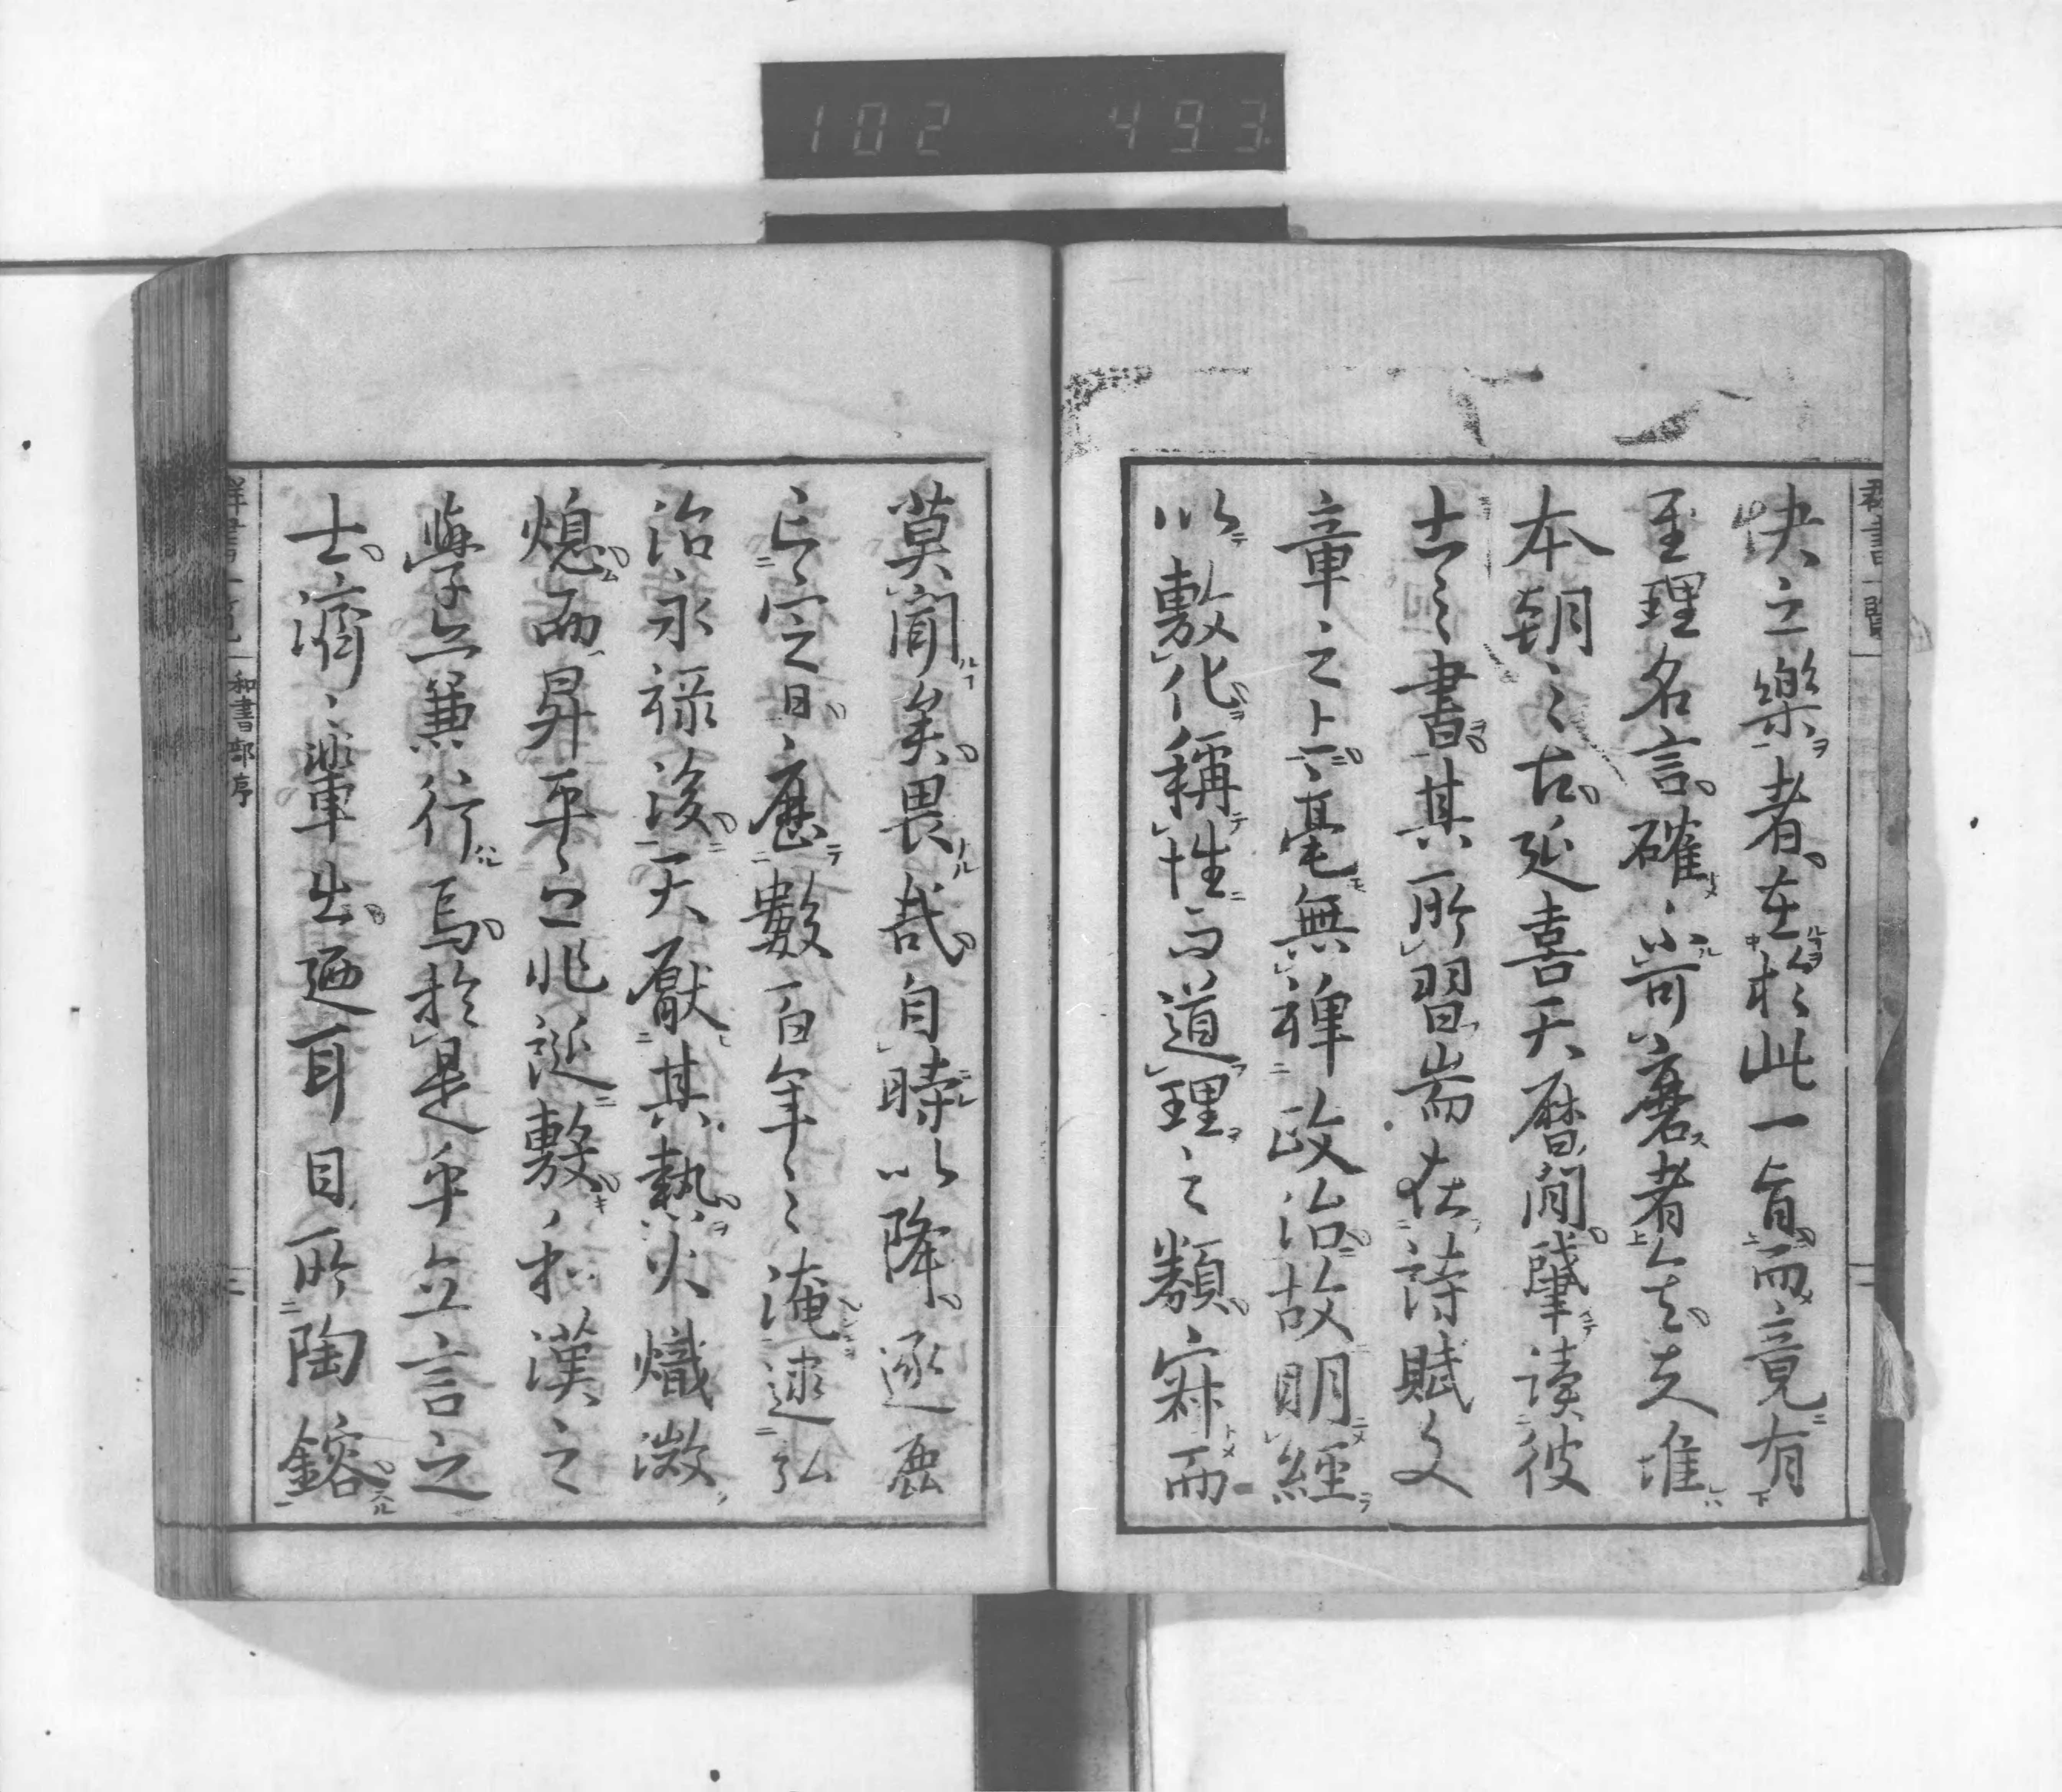 102 493
群書一覽
快之樂者在於此一旨而竟有
至理名言確不可磨者矣夫惟
本朝之古延喜天曆間肇讀彼
土之書其所習耑在詩賦文
章之上毫無裨政治故明經
以敷化稱性而道理之類寂而
莫聞矣畏哉自時以降逐鹿
亡寧日歷數百年之淹逮弘
治永祿後天厭其熱火熾漸
熄而昇平之兆誕敷和漢之
學並兼行焉於是乎立言之
士濟〻輩出廼耳目所陶鎔
群書一覽 和書部序 二